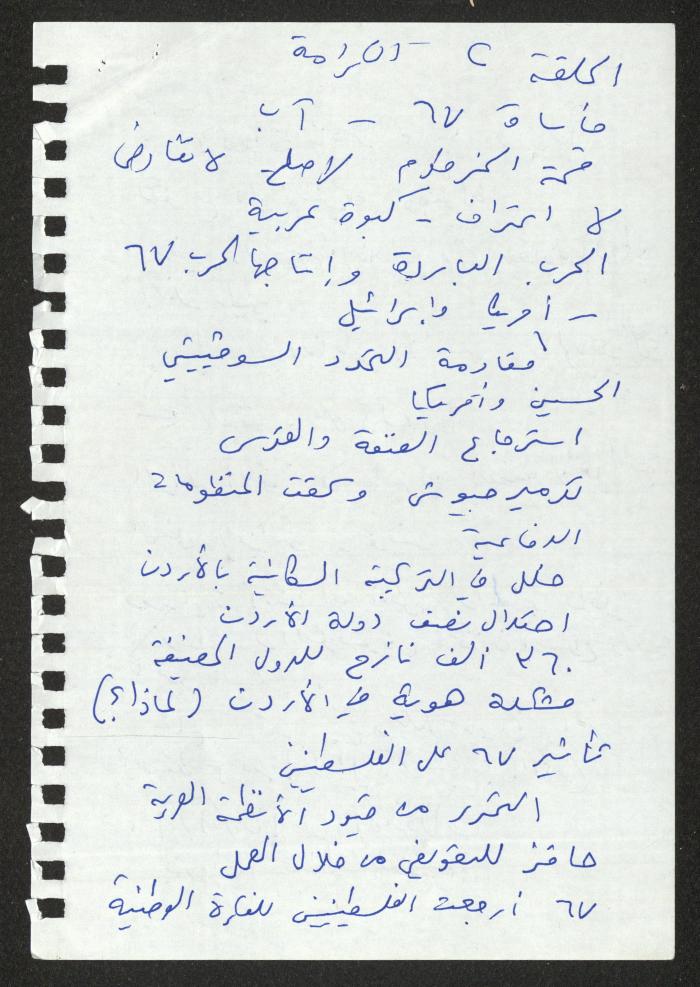 الحلقة ٢ - الكرامة
مأساة ٦٧ - آب
قمة الخرطوم لا صلح لا تفاوض
لا اعتراف - كبوة عربية
الحرب الباردة وإنتاجها لحرب ٦٧
- أمريكا وإسرائيل
مقاومة التمدد السوفييتي
الحسين وأمريكا
استرجاع الضفة والقدس
تدمير جيوش وكشفت المنظومات
الدفاعية
خلل في التركيبة السكانية بالأردن
احتلال نصف دولة الأردن
٣٦٠ ألف نازح للدول المضيفة
مشكلة هوية في الأردن (لماذا؟)
تأثير ٦٧ على الفلسطينيين
التحرر من قيود الأنظمة العربية
حافز للتعويض من خلال العمل
٦٧ أرجعت الفلسطينيين للفكرة الوطنية